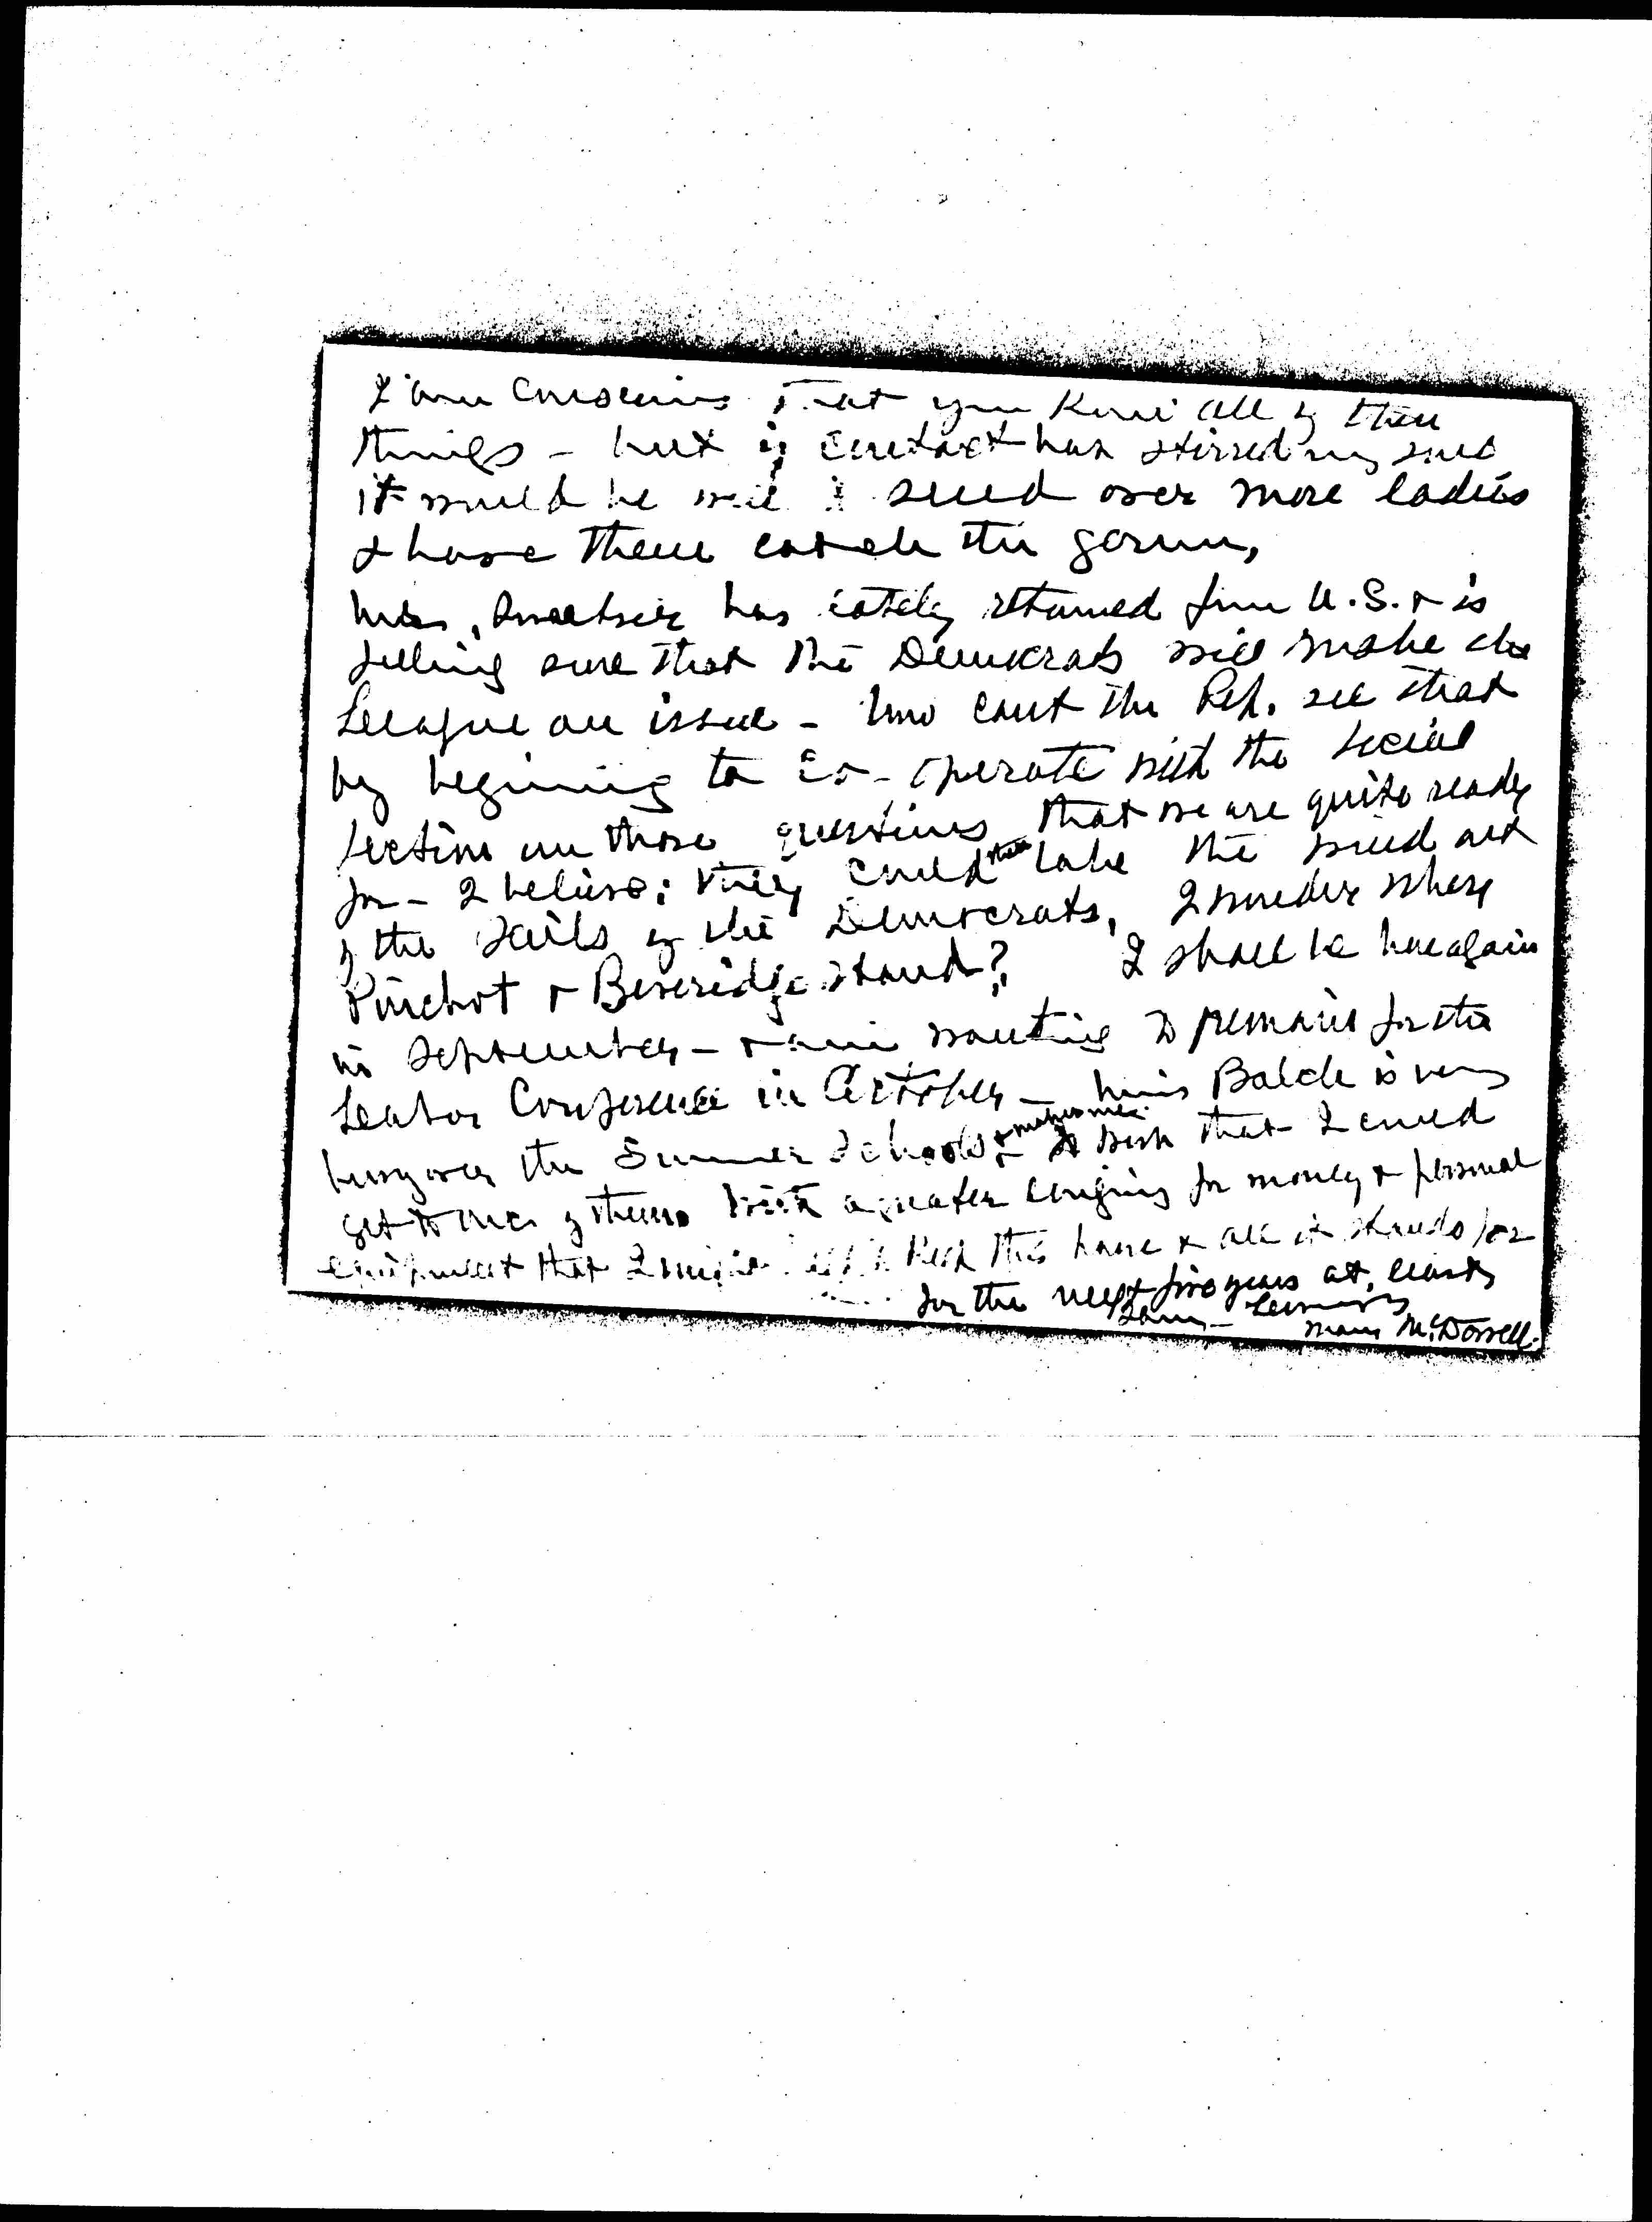 I am conscious that you know all of these
things - but if contact has stirred my soul
it would be well to send over more ladies
& have them catch the germ,
Mrs. has lately returned from U.S. & is
feeling sure that the Democrats will make the
League an issue - Now cant the Rep. see that
by begining to co-operate with the Social
Section on those questions that we are quite ready
for - I believe; they could then take the wind out
of the sails of the Democrats, I wonder where
Pinchot & Beveridge stand? I shall be here again
in September - & am wanting to remain for the
Labor Conference in October - Miss Balch is very
busy over the Summer Schools & makes me wish that I could
get to one of them with a greater longing for money & personal
equipment that I might keep this house & all it stands for
for the next five years at least,
Mary McDowell.